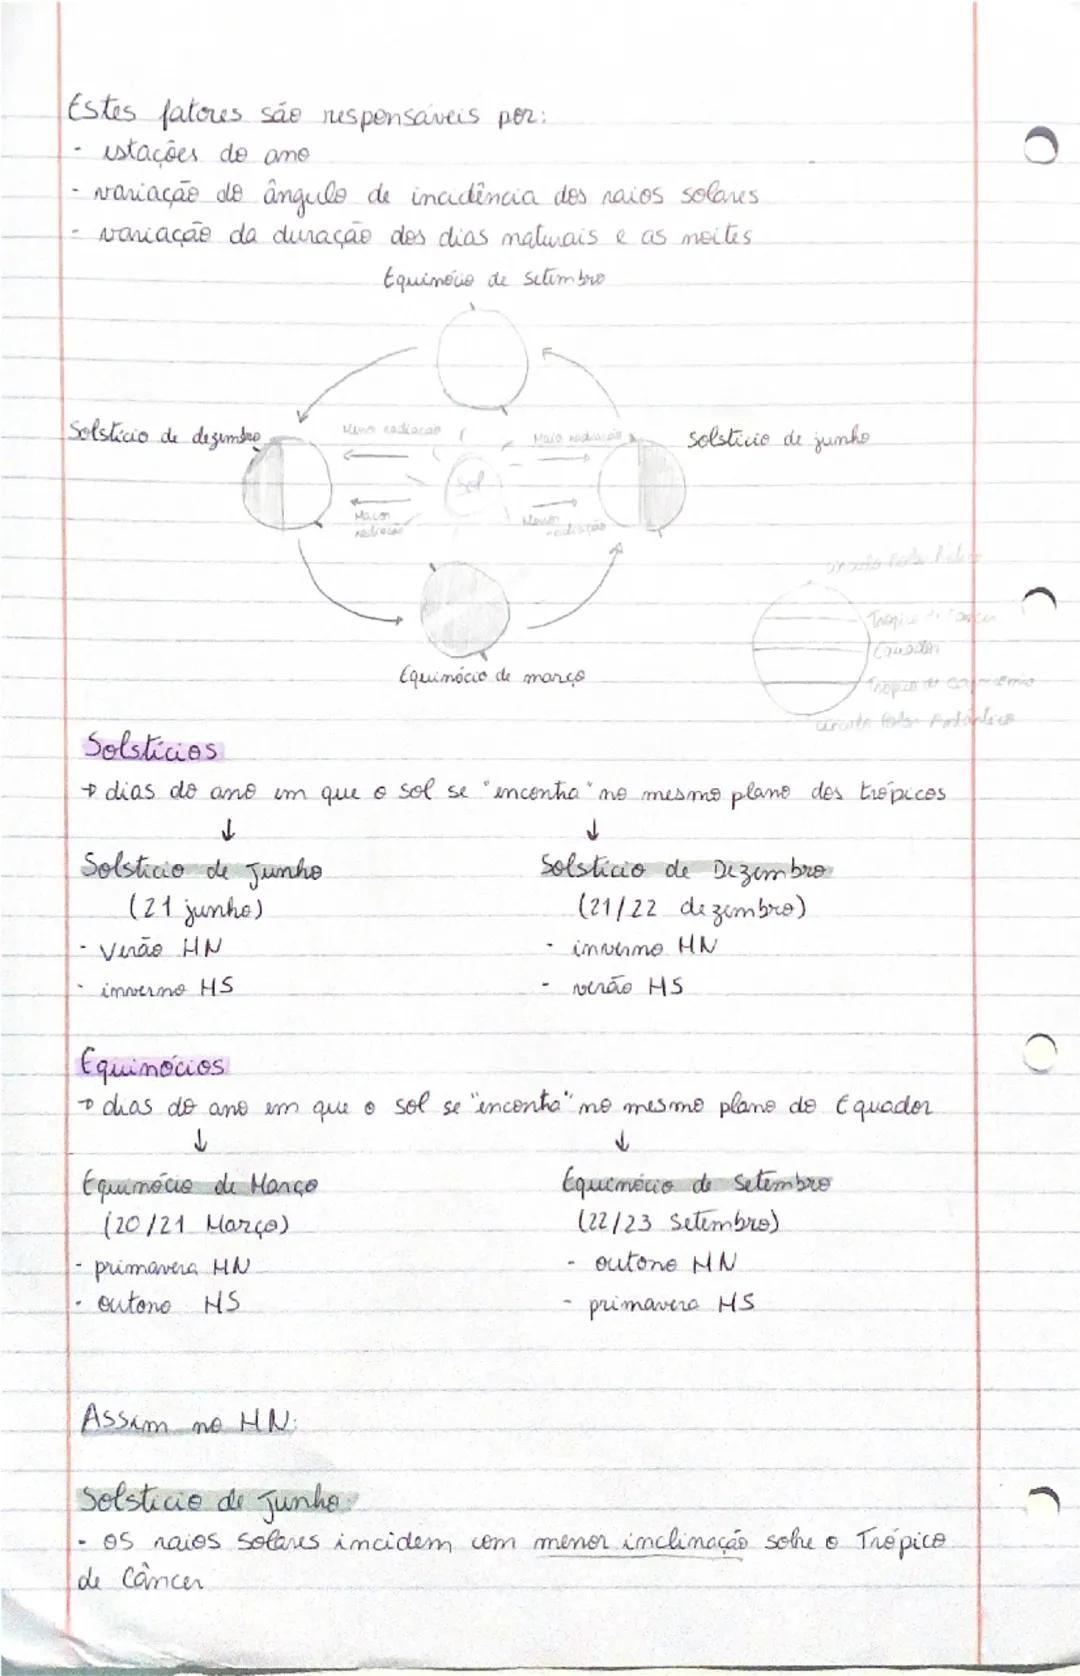 Estes fatores são responsáveis por:
- estações do ano
- variação do ângulo de incidência dos raios solares
- variação da duração dos dias naturais e as noites
Equinócio de Setembro
Solstício de dezembro
Menor radiação
Maio radiação
Solstício de junho
Sol
Maior radiação
Menor radiação
Trópico de Cancer
Equador
Equinócio de março
Trópico de Capricornio
circulo Polar Antártico
Solstícios
→ dias do ano em que o sol se "encontra" no mesmo plano dos trópicos
↓ ↓
Solstício de Junho Solstício de Dezembro
(21 junho) (21/22 dezembro)
- Verão HN - inverno HN
- inverno HS - verão HS
Equinócios
→ dias do ano em que o sol se "encontra" no mesmo plano do Equador
↓ ↓
Equinócio de Março Equinócio de Setembro
(20/21 Março) (22/23 Setembro)
- primavera HN - outono HN
- outono HS - primavera HS
Assim no HN:
Solstício de Junho:
- os raios solares incidem com menor inclinação sobre o Trópico
de Câncer